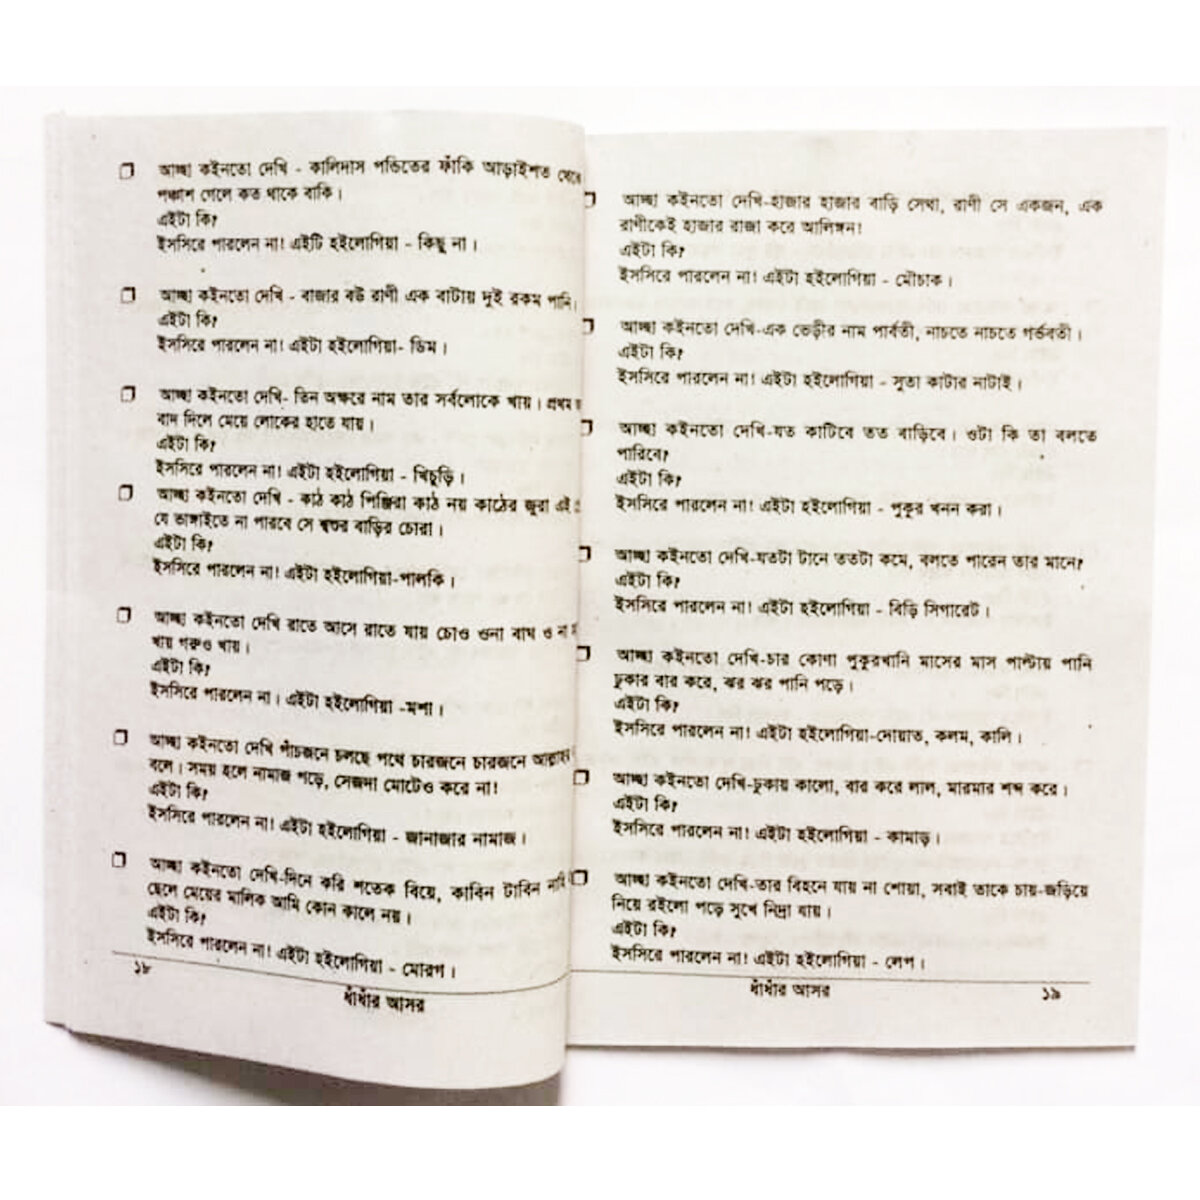 ❐ আচ্ছা কইনতো দেখি - কালিদাস পন্ডিতের ফাঁকি আড়াইশত থেকে
পঞ্চাশ গেলে কত থাকে বাকি।
এইটা কি?
ইসসিরে পারলেন না! এইটি হইলোগিয়া - কিছু না।
❐ আচ্ছা কইনতো দেখি - বাজার বউ রাণী এক বাটায় দুই রকম পানি।
এইটা কি?
ইসসিরে পারলেন না! এইটা হইলোগিয়া- ডিম।
❐ আচ্ছা কইনতো দেখি- তিন অক্ষরে নাম তার সর্বলোকে খায়। প্রথম
বাদ দিলে মেয়ে লোকের হাতে যায়।
এইটা কি?
ইসসিরে পারলেন না! এইটা হইলোগিয়া - খিচুড়ি।
❐ আচ্ছা কইনতো দেখি - কাঠ কাঠ পিঞ্জিরা কাঠ নয় কাঠের জুরা এই
যে ভাঙ্গাইতে না পারবে সে শ্বশুর বাড়ির চোরা।
এইটা কি?
ইসসিরে পারলেন না! এইটা হইলোগিয়া-পালকি।
❐ আচ্ছা কইনতো দেখি রাতে আসে রাতে যায় চোও ওনা বাঘ ও না
খায় গরুও খায়।
এইটা কি?
ইসসিরে পারলেন না। এইটা হইলোগিয়া -মশা।
❐ আচ্ছা কইনতো দেখি পাঁচজনে চলছে পথে চারজনে চারজনে আল্লাহর
বলে। সময় হলে নামাজ পড়ে, সেজদা মোটেও করে না!
এইটা কি?
ইসসিরে পারলেন না! এইটা হইলোগিয়া - জানাজার নামাজ।
❐ আচ্ছা কইনতো দেখি-দিনে করি শতেক বিয়ে, কাবিন টাবিন নাই
ছেলে মেয়ের মালিক আমি কোন কালে নয়।
এইটা কি?
ইসসিরে পারলেন না! এইটা হইলোগিয়া - মোরগ।
১৮
ধাঁধাঁর আসর
❐ আচ্ছা কইনতো দেখি-হাজার হাজার বাড়ি সেথা, রাণী সে একজন, এক
রাণীকেই হাজার রাজা করে আলিঙ্গন!
এইটা কি?
ইসসিরে পারলেন না! এইটা হইলোগিয়া - মৌচাক।
❐ আচ্ছা কইনতো দেখি-এক ভেড়ীর নাম পার্বতী, নাচতে নাচতে গর্ভবতী।
এইটা কি?
ইসসিরে পারলেন না! এইটা হইলোগিয়া - সুতা কাটার নাটাই।
❐ আচ্ছা কইনতো দেখি-যত কাটিবে তত বাড়িবে। ওটা কি তা বলতে
পারিবে?
এইটা কি?
ইসসিরে পারলেন না! এইটা হইলোগিয়া - পুকুর খনন করা।
❐ আচ্ছা কইনতো দেখি-যতটা টানে ততটা কমে, বলতে পারেন তার মানে?
এইটা কি?
ইসসিরে পারলেন না! এইটা হইলোগিয়া - বিড়ি সিগারেট।
❐ আচ্ছা কইনতো দেখি-চার কোণা পুকুরখানি মাসের মাস পাল্টায় পানি
ঢুকার বার করে, ঝর ঝর পানি পড়ে।
এইটা কি?
ইসসিরে পারলেন না! এইটা হইলোগিয়া-দোয়াত, কলম, কালি।
❐ আচ্ছা কইনতো দেখি-ঢুকায় কালো, বার করে লাল, মারমার শব্দ করে।
এইটা কি?
ইসসিরে পারলেন না! এইটা হইলোগিয়া - কামাড়।
❐ আচ্ছা কইনতো দেখি-তার বিহনে যায় না শোয়া, সবাই তাকে চায়-জড়িয়ে
নিয়ে রইলো পড়ে সুখে নিদ্রা যায়।
এইটা কি?
ইসসিরে পারলেন না! এইটা হইলোগিয়া - লেপ।
ধাঁধাঁর আসর
১৯